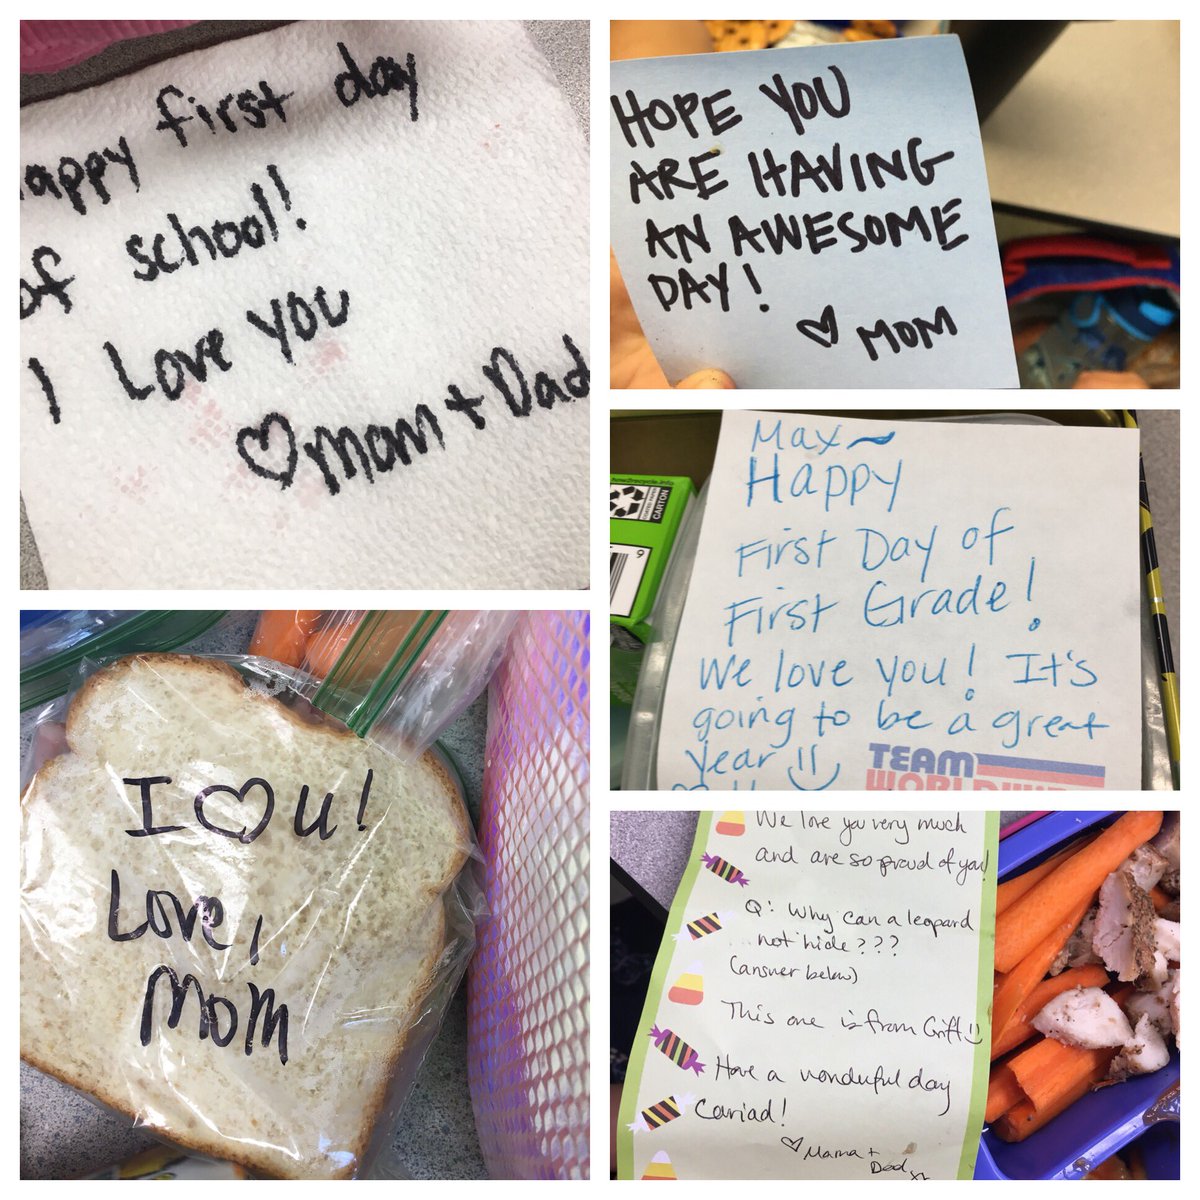 happy first day
of school!
I Love you
♡ mom + Dad
HOPE YOU
ARE HAVING
AN AWESOME
DAY!
♡ MOM
how2recycle.info
CARTON
9
Max~
Happy
First Day of
First Grade!
We love you! It's
going to be a great
year
TEAM
WORLDWIDE
I ♡ u!
Love,
Mom
We love you very much
and are so proud of you!
Q: Why can a leopard
not hide???
(answer below)
This one is from Griff
Have a wonderful day
Cariad!
♡ Mama +
Dad